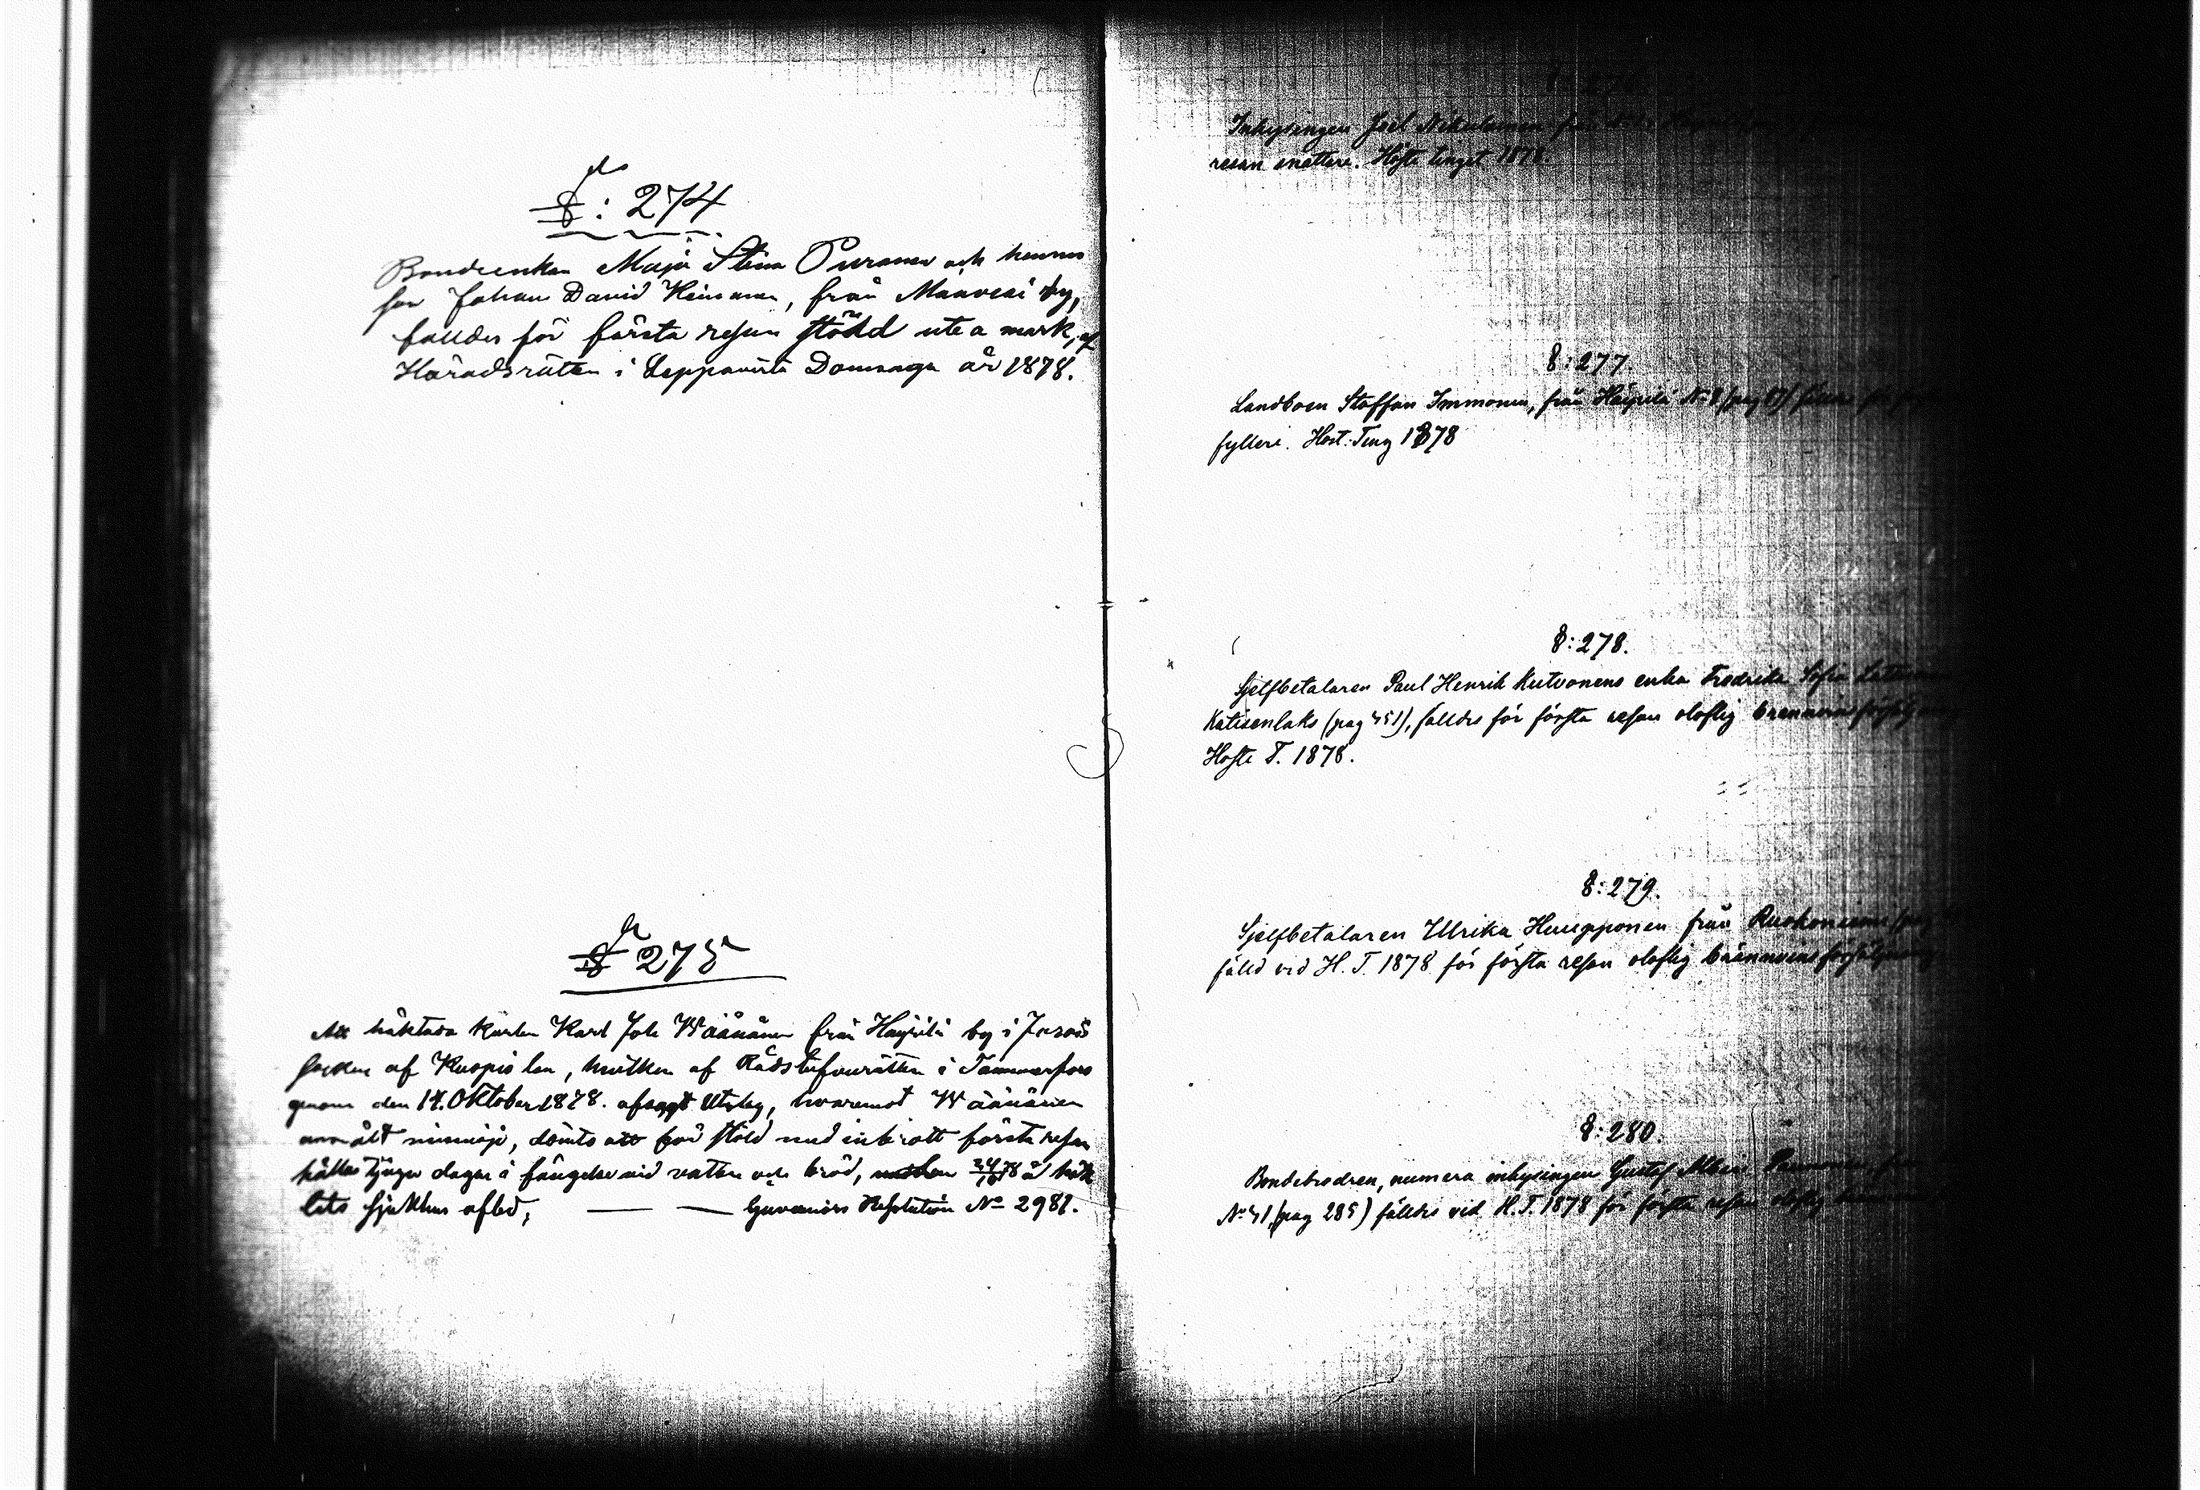 §: 274
Bondeenkan Maja Stina Puranen och hennes
son Johan David Heinonen, från Maavesi by,
falldes för första resan stöld ute a mark, af
Häradsrätten i Leppävirta Domsaga år 1878.
§ 275
Att häktade karlen Karl Joh Wäänänen från Hayrilä by i Jorois
socken af Kuopio län, hvilken af Rådstufvurätten i Tammerfors
genom den 14. Oktober 1878. afsagdt Utslag, hvaremot Wäänänen
anmält missnöje, dömts att för stöld med inbrott första resan
hållas tjugu dagar i fängelse vid vatten och bröd, 24/10 78 å häk
lets sjukhus afled; — — Guvernörs Resolution No 2981.
Inhysingen Joel Nikulainen
resan snatteri. Höste tinget 1878.
§: 277.
Landboen Staffan Immonen, från Häyrilä No 8 (pag 87) fälldes för
fylleri. Höst. Ting 1878
§: 278.
Sjelfbetalaren Paul Henrik Kutvonens enka Fredrika Sofia
Katisenlaks (pag 451), fälldes för första resan oloflig brännvinsförsäljning
Höste T. 1878.
§: 279.
Sjelfbetalaren Ulrika Huupponen från Ruokoniemi (pag
fälld vid H. T. 1878 för första resan oloflig brännvinsförsäljning
§: 280.
Bondebrodren, numera inhysingen Gustaf Alben
No 41 (pag 285) fälldes vid H. T. 1878 för första resan oloflig